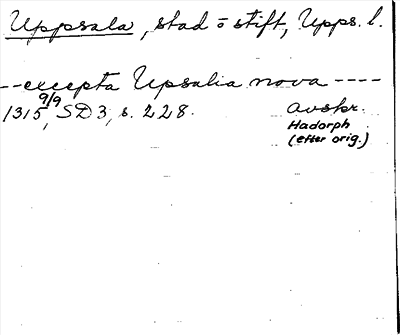 Uppsala, stad o stift, Upps. l.
--excepta Upsalia nova ----
1315 9/9, SD3, s. 228. Avskr.
Hadorph
(efter orig.)